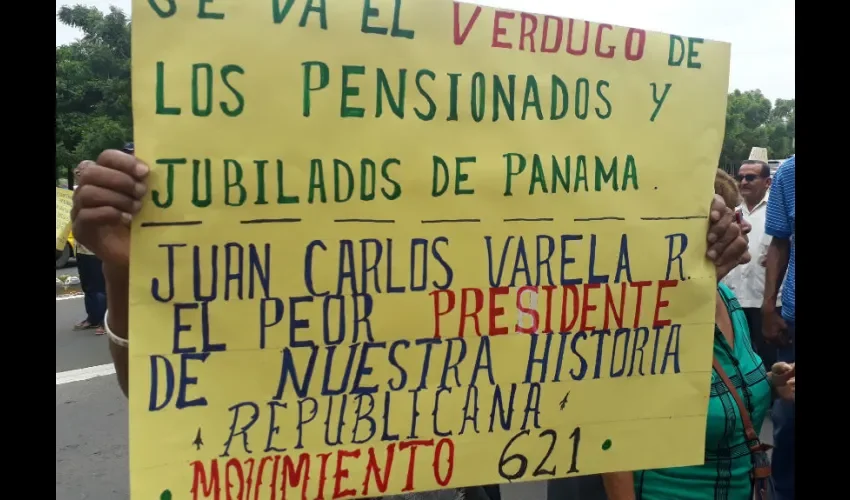 SE VA EL VERDUGO DE
LOS PENSIONADOS Y
JUBILADOS DE PANAMA.
JUAN CARLOS VARELA R.
EL PEOR PRESIDENTE
DE NUESTRA HISTORIA
REPUBLICANA
MOVIMIENTO 621